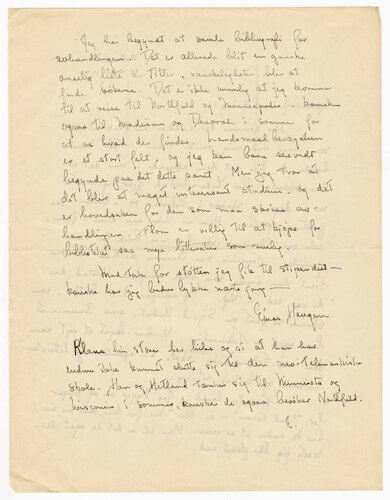 Jeg har begyndt at samle bibliografi for
avhandlingen. Det er allerede blit en ganske
anselig liste av titler, vanskeligheten blir at
finde bøkerne. Det er ikke umulig at jeg kommer
til at reise til Northfield og Minneapolis – kanske
ogsaa til Madison og Decorah i sommer for
at se hvad der findes. Landsmaal bevægelsen
er et stort felt, og jeg kan bare saavidt
begynde paa det dette aaret. Men jeg tror at
det blir et meget interessant studium, og det
er hovedsaken for den som maa skrive av-
handlingen. Flom er villig til at kjøpe for
biblioteket saa mye litteratur som mulig.
Med takk for støtten jeg fik til stipendiet –
kanske har jeg bedre lykke næste gang –
Einar Haugen
Klaus hin store ber hilse og si at han har
endnu ikke kunnet slutte sig til den neo-Telemarkiske
skole. Han og Hetland tænker sig til Minnesota og
Wisconsin i sommer, kanske de ogsaa besøker Northfield.
E.